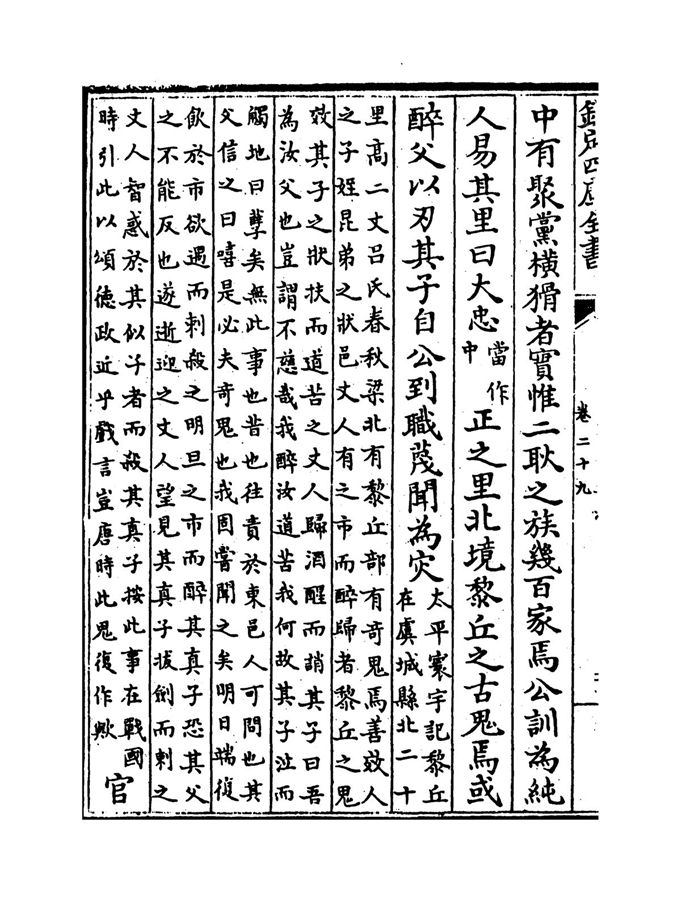 欽定四庫全書
卷二十九
中有聚黨橫猾者實惟二耿之族幾百家焉公訓為純
人易其里曰大忠當作中正之里北境黎丘之古鬼焉或
醉父以刃其子自公到職蔑聞為灾太平寰宇記黎丘
在虞城縣北二十
里高二丈吕氏春秋梁北有黎丘部有奇鬼焉善效人
之子姪昆弟之狀邑丈人有之市而醉歸者黎丘之鬼
效其子之狀扶而道苦之丈人歸酒醒而誚其子曰吾
為汝父也豈謂不慈哉我醉汝道苦我何故其子泣而
觸地曰孽矣無此事也昔也往責於東邑人可問也其
父信之曰嘻是必夫奇鬼也我固嘗聞之矣明日端復
飲於市欲遇而刺殺之明旦之市而醉其真子恐其父
之不能反也遂逝迎之丈人望見其真子拔劍而刺之
丈人智惑於其似子者而殺其真子按此事在戰國
時引此以頌徳政近乎戲言豈唐時此鬼復作歟
官